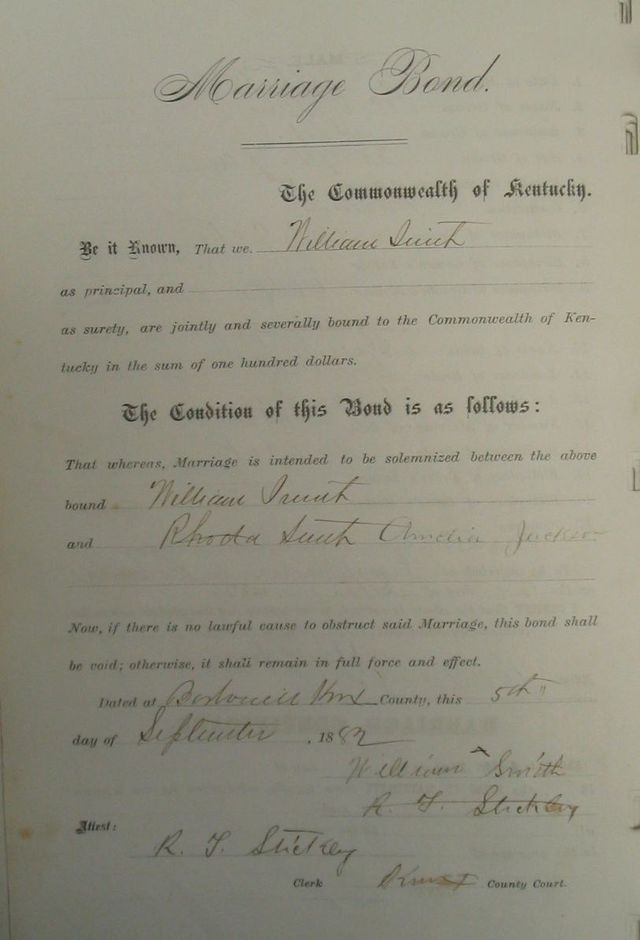 Marriage Bond.
The Commonwealth of Kentucky.
Be it Known, That we William Smith
as principal, and
as surety, are jointly and severally bound to the Commonwealth of Ken-
tucky in the sum of one hundred dollars.
The Condition of this Bond is as follows:
That whereas, Marriage is intended to be solemnized between the above
bound William Smith
and Rhoda Smith Amelia
Now, if there is no lawful cause to obstruct said Marriage, this bond shall
be void; otherwise, it shall remain in full force and effect.
Dated at Knox County, this 5th "
day of September , 1882
William Smith
R. T. Stickley
Attest:
R. T. Stickley
Clerk Knox County Court.